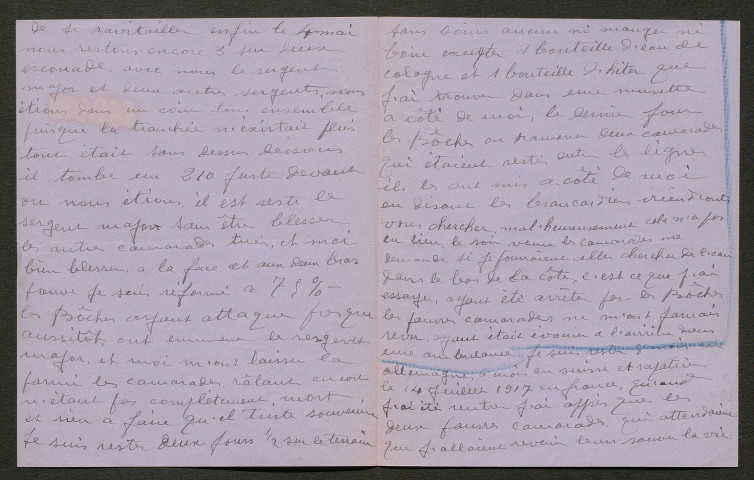 de si ravitailler enfin le 4 mai
nous restons encore 3 sur deux
escouade. avec nous le sergent
major et deux autres sergents, nous
étions dans un coin tous ensemble
puisque la tranchée n'existait plus
tout était sans dessus dessous
il tombe un 210 juste devant
ou nous étions, il est resté le
sergent major sans être blesser
les autres camarades tués, et moi
bien blesser, a la face et aux deux bras
je suis réformé a 75 %
les Bôches ayant attaque presque
aussitôt, ont emmene le sergent
major, et moi m'ont laisser la
parmi les camarades râlant encore
n'étant pas complètement mort
et rien a faire qu'el triste souvenir
Je suis rester deux jours ½ sur le terrain
sans soins aucun ni manger ni
boire excepter 1 bouteille d'eau de
cologne et 1 bouteille d'hèter que
j'ai trouver dans une musette
a côté de moi, le dernier jour
les Bôches on ramener deux camarades
qui étaient rester entre les lignes
ils les ont mis a côté de moi
en disant les brancardiers viendront
vous chercher, mal-heureusement cela n'a pas
eu lieu, le soir venu les camarades me
demande si je pourraient aller chercher de l'eau
dans le bas de la côte, c'est ce que j'ai
essayer, ayant été arrêter par les Bôches
les pauvres camarades ne m'ont jamais
revu, ayant était évacué a l'arrière dans
une ambulance, je suis rester
allemagne, mois en suisse et rapatrier
le 14 Juillet 1917 en france, quand
j'ai été rentrer j'ai appris que les
deux pauvres camarades qui attendaient
que j'allaient revenir leur sauver la vie